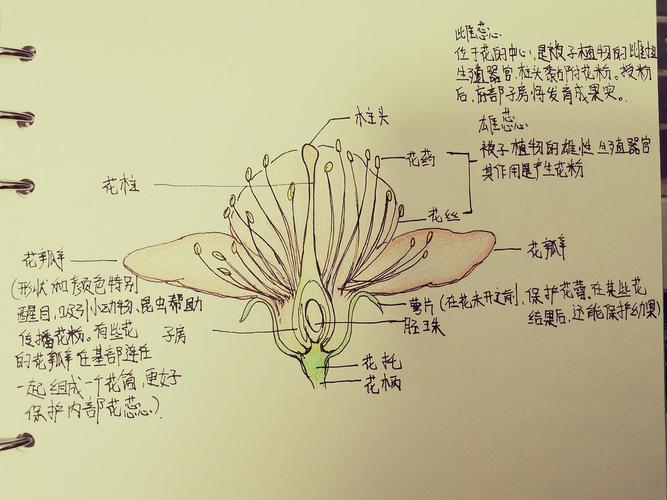 雌蕊心.
位于花的中心,是被子植物的雌性
生殖器官,柱头黏附花粉。授粉
后,底部子房将发育成果实。
雄蕊心.
被子植物的雄性生殖器官
其作用是产生花粉
柱头
花药
花柱
花丝
花瓣
花瓣
(形状和颜色特别
醒目,吸引小动物、昆虫帮助
传播花粉。有些花
的花瓣在基部连在
一起组成一个花筒,更好
保护内部花蕊心.)
萼片(在花未开之前,保护花蕾,在某些花
结果后,还能保护幼果)
子房
胚珠
花托
花柄